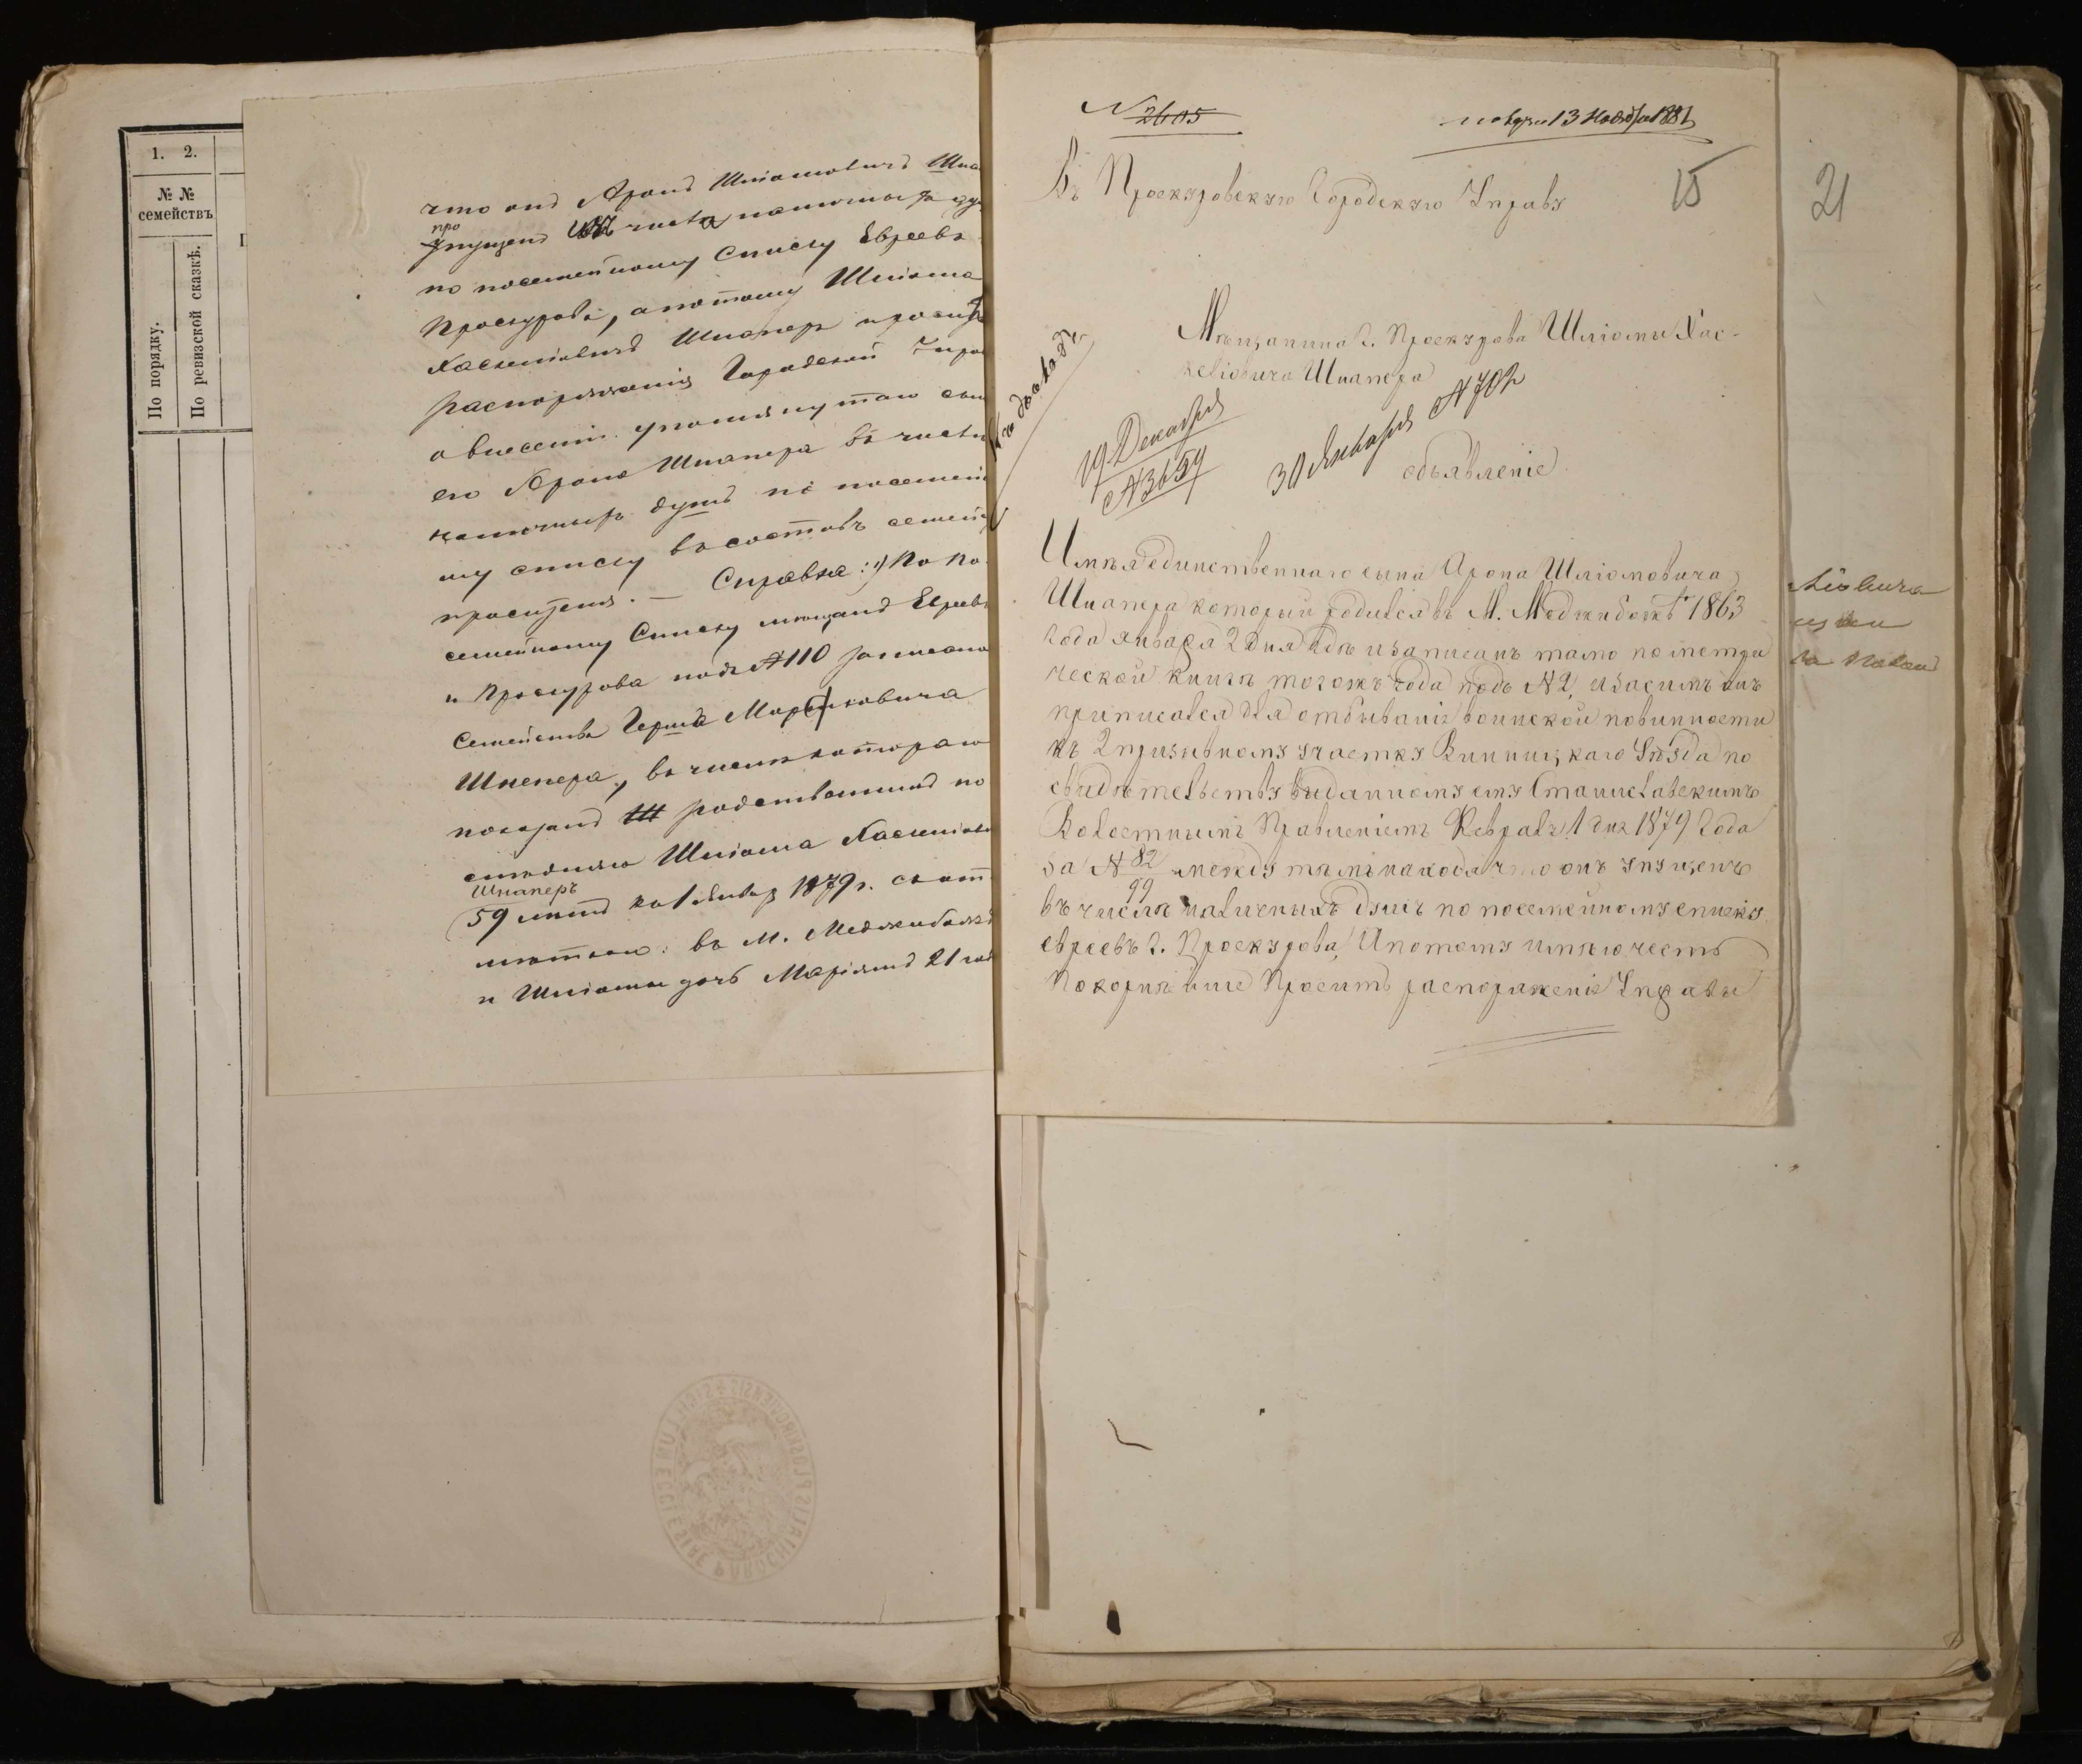 1. 2.
№ №
семействъ
По порядку.
По ревизской сказкѣ.
что онъ Аронъ Шліомовичъ Шна
про
пущенъ числа наличныхъ ду
по посемейному списку Евреевъ
Проскурова, а потому Шліома
Хаскеліовичъ Шнаперъ проситъ
распоряженія Городской Упра
о внесеніи упомянутаго сын
его Арона Шнапера въ число
наличныхъ душъ по посемейн
му списку въ составъ семей
просителя. — Справка: 1) По По
семейному Списку мѣщанъ Евреевъ
г. Проскурова подъ №110 записано
Семейство Герша Мор ковича
Шнепера, въ числѣ котораго
показанъ родственникъ по
слѣдняго Шліома Хаскеліови
Шнаперъ
59 лѣтъ къ 1 Январ 1879 г. съ отм
мѣткою: въ М. Меджибожѣ
и Шліомы дочь Маріямъ 21 год
N 2605
получ 13 Ноября 1881
Въ Проскуровскую Городскую Управу
15
21
Къ докладу
Мѣщанина г. Проскурова Шліомы Хас-
келіовича Шнапера
19 Декабря
№3659
30 Января №702
объявленіе
Имѣя единственнаго сына Арона Шліомовича
Шнапера который родился въ М. Меджибожѣ 1863
года января 2 дня гдѣ и записанъ тамо по метри
ческой книгѣ тогожъ года подъ №2, и засимъ онъ
приписался для отбыванія воинской повинности
къ 2 призывному участку Винницкаго Уѣзда по
свидѣтельству виданному ему Станиславскимъ
Волостнымъ Правленіемъ Февраля 1 дня 1879 года
за № 82
99 между тѣмъ находя что онъ упущенъ
въ числѣ наличныхъ душъ по посемейному списку
евреевъ г. Проскурова, А потому имѣю честь
покорнѣйше Просить распоряженіе Управы